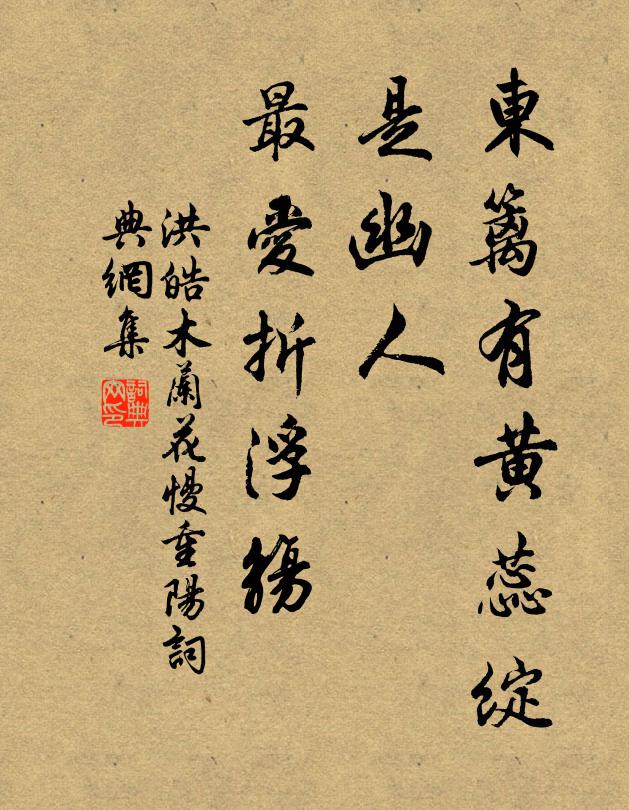 東籬有黃蕊綻
是幽人
最愛折浮觴
洪皓木蘭花慢重陽詞
典網集
詞典网印